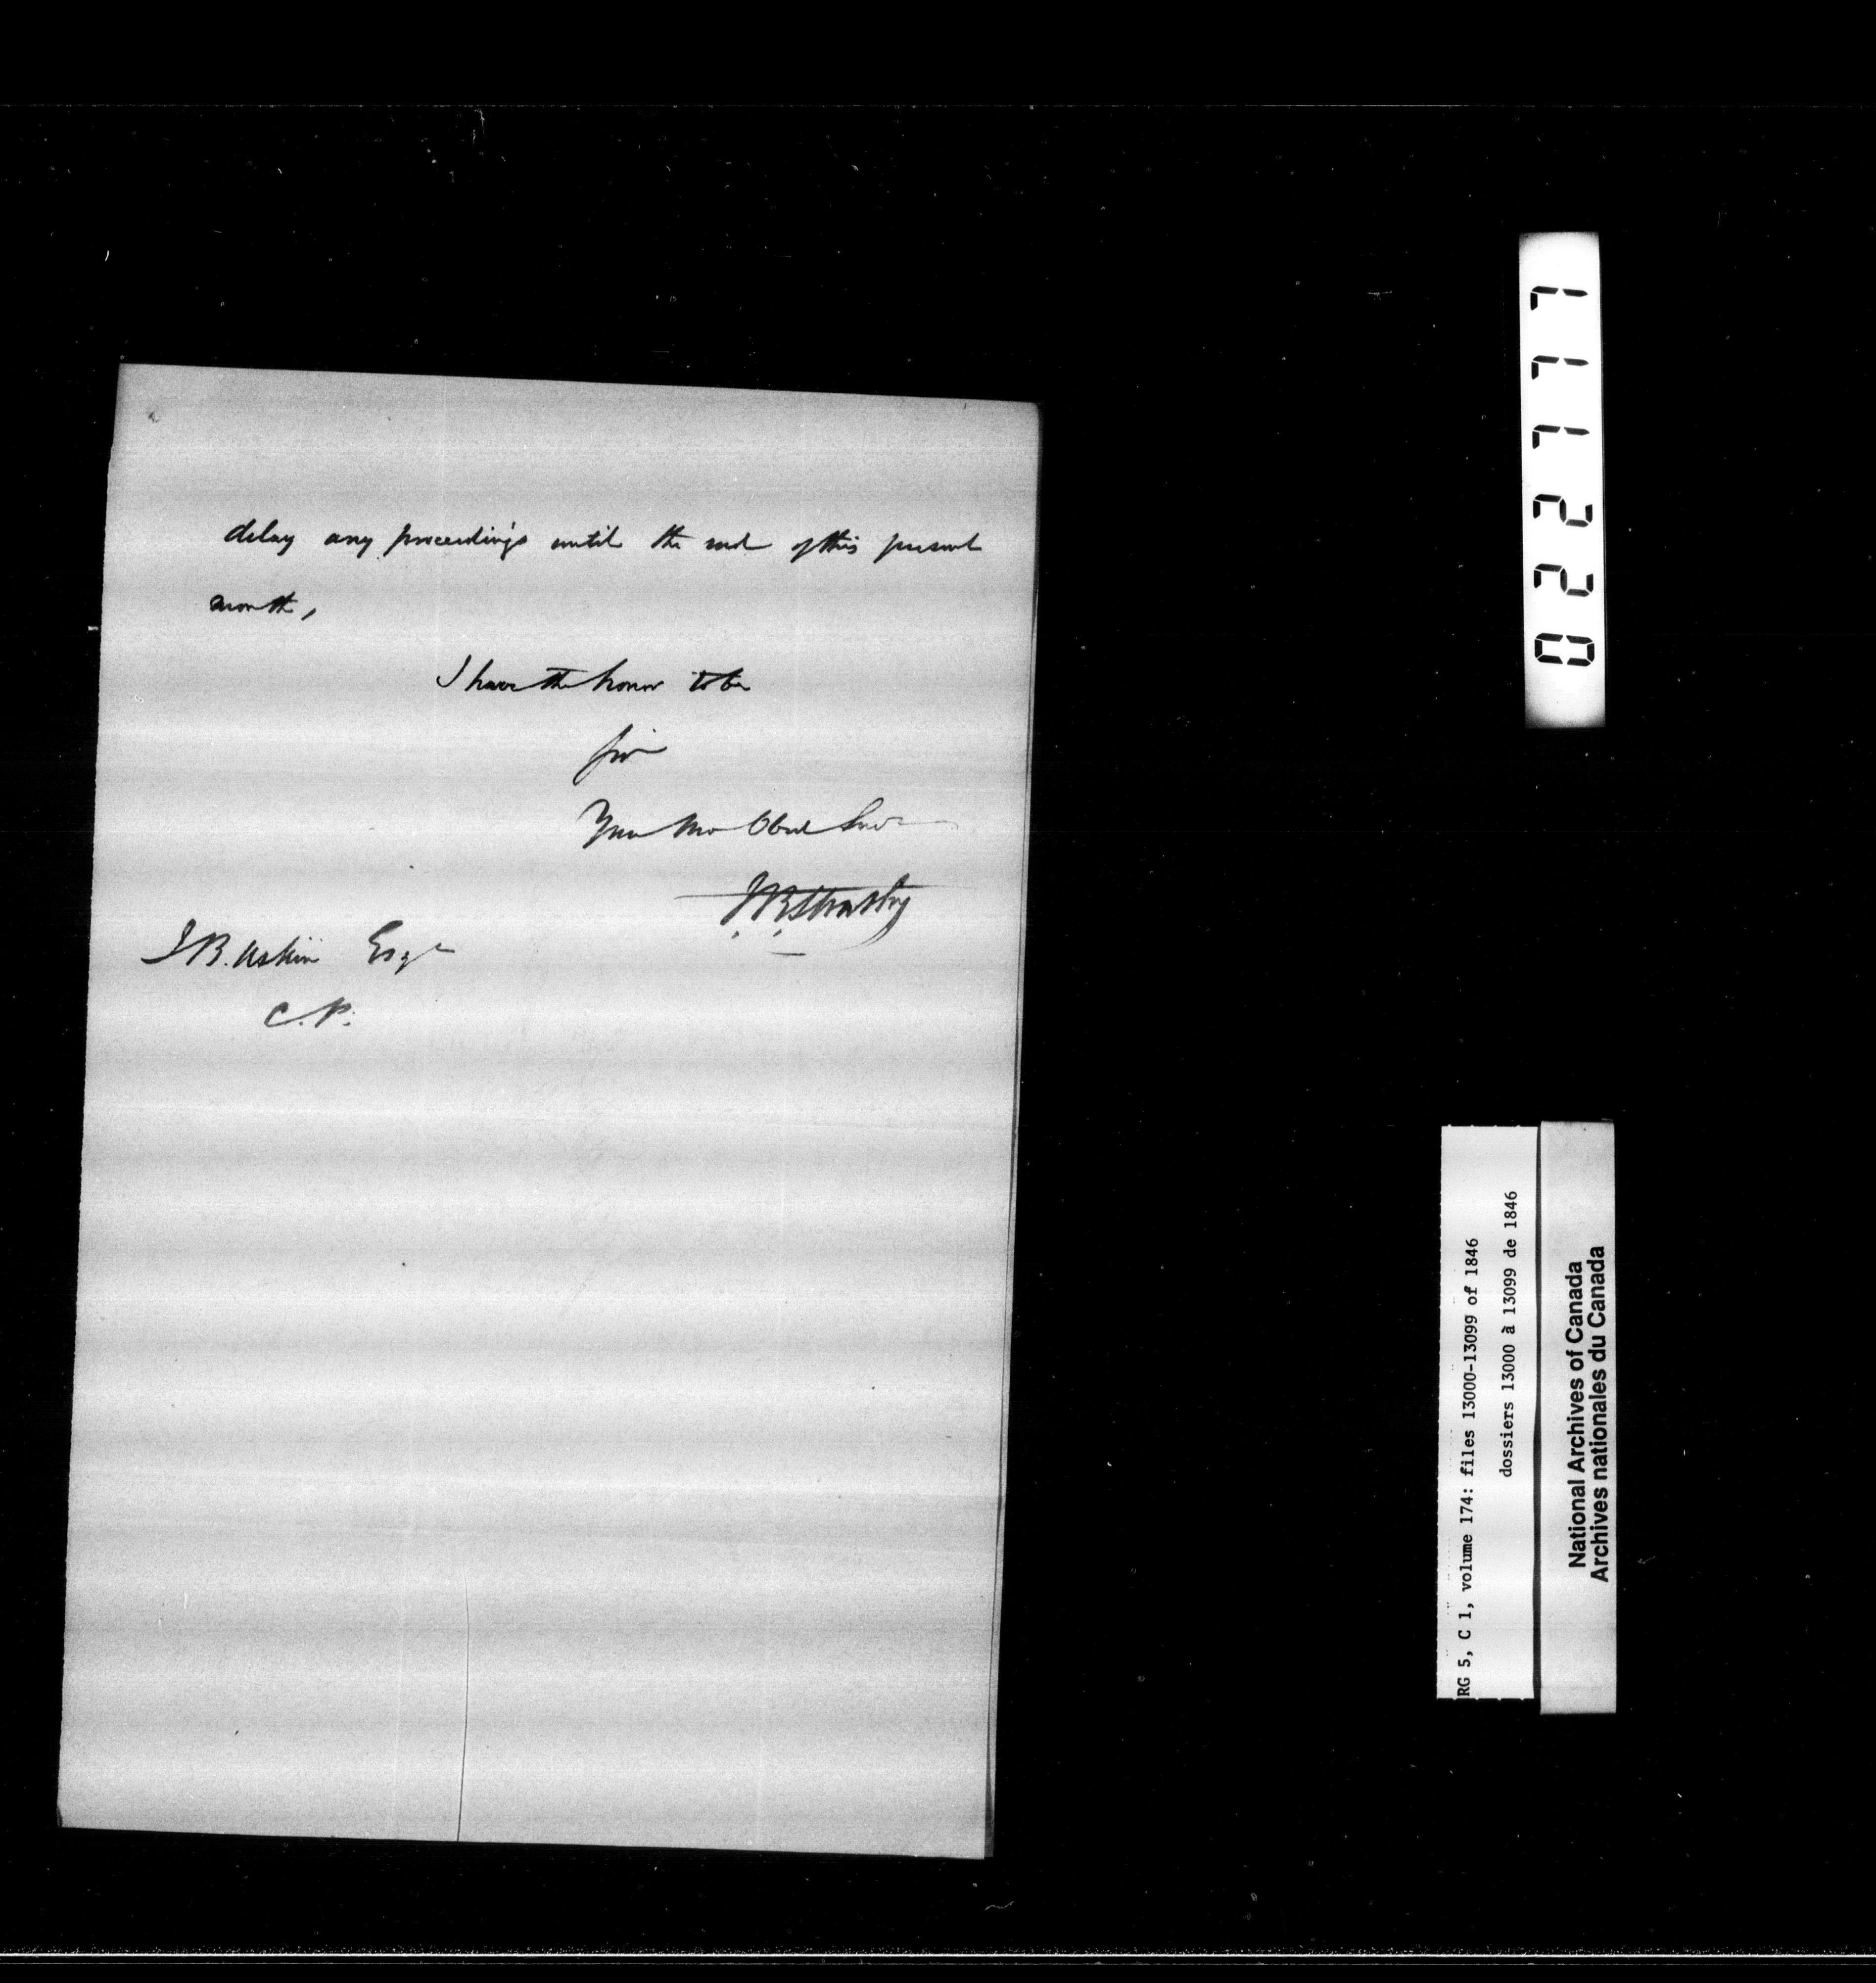 delay any proceedings until the end of this present
month,
I have the honor to be
Sir
Your Mo Obed Servt
J.B. Askin Esqr
C.P.
022777
RG 5, C 1, volume 174: files 13000-13099 of 1846
dossiers 13000 à 13099 de 1846
National Archives of Canada
Archives nationales du Canada